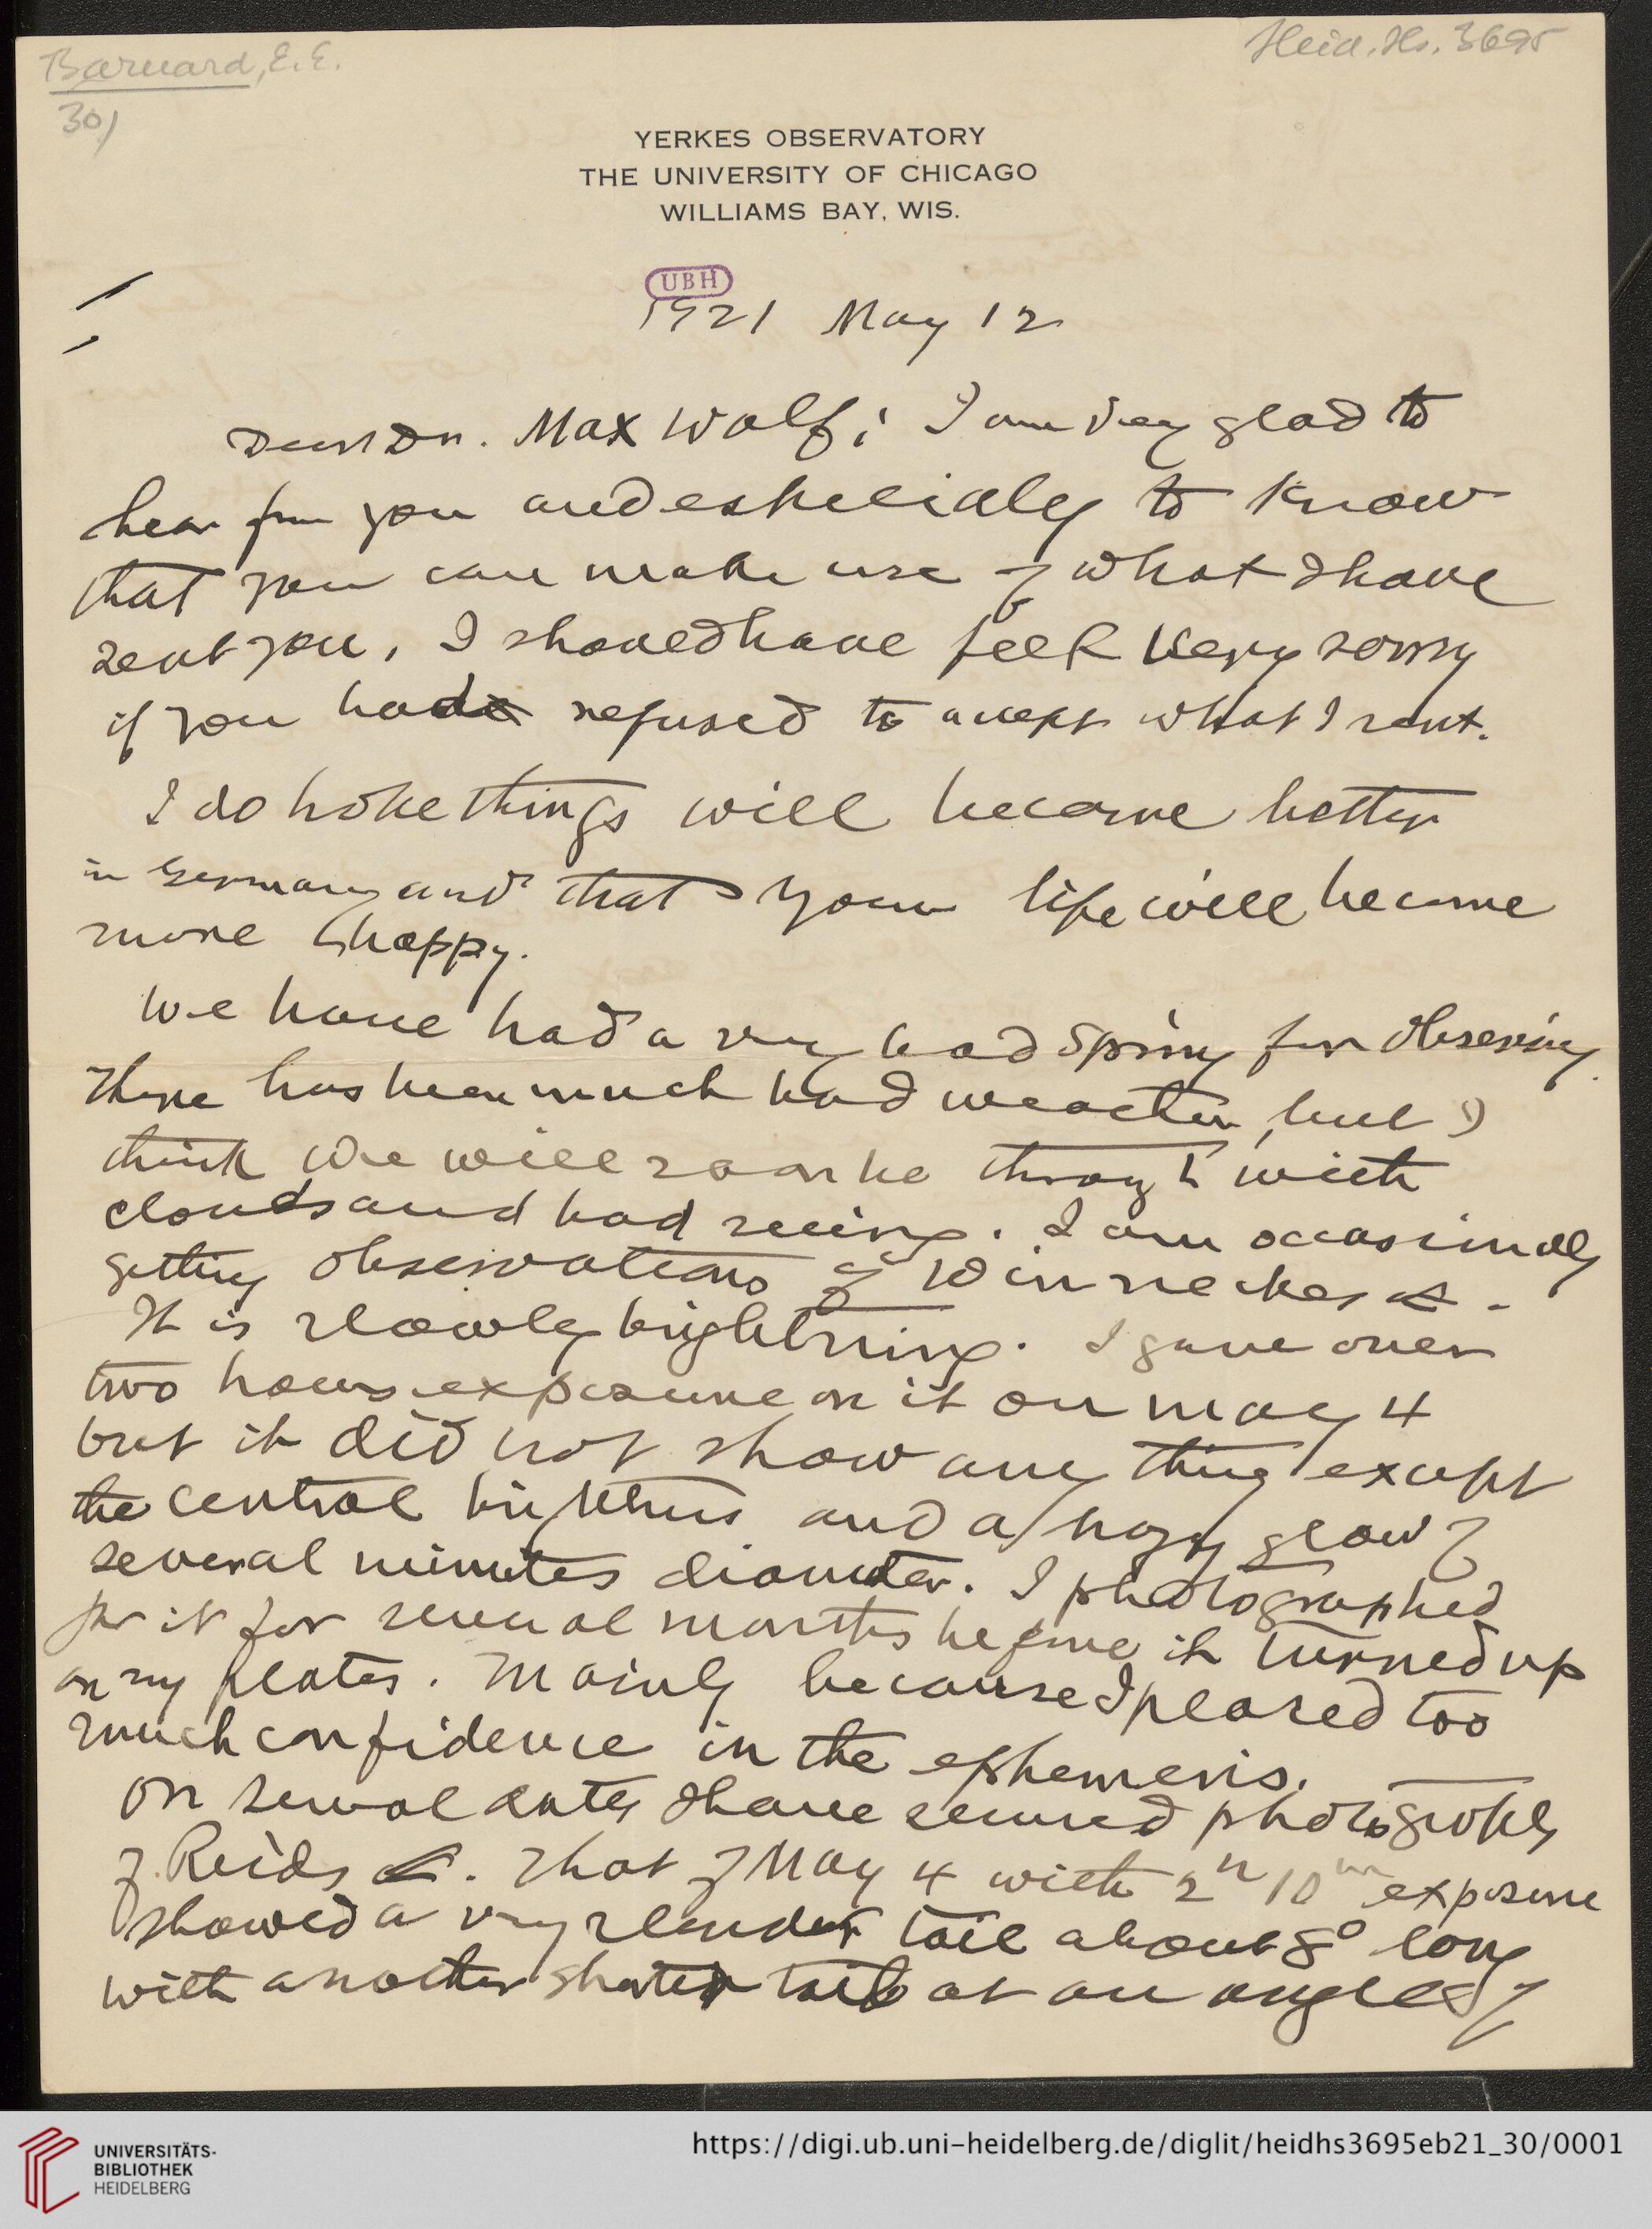 Barnard, E. E.
Heid. Hs. 3695
30)
YERKES OBSERVATORY
THE UNIVERSITY OF CHICAGO
WILLIAMS BAY, WIS.
UBH
1921 May 12
Dear Dr. Max Wolf; I am very glad to
hear from you and especially to know
that you can make use of what I have
sent you. I should have feel very sorry
if you had refused to accept what I sent.
I do hope things will become better
in Germany and that your life will become
more happy.
We have had a very bad spring for observing.
There has been much bad weather, but I
think we will soon be through with
clouds and bad seeing. I am occasionally
getting observations of Winneckes
It is slowly brightning. I gave over
two hours exposure on it on may 4
but it did not show any thing except
the central brightness and a hazy glow of
several minutes diameter. I photographed
for it for several months before it turned up
on my plates. Mainly because I placed too
much confidence in the ephemeris.
On several dates I have secured photographs
of Reids. That of May 4 with 2h 10m exposure
showed a very slender tail about 8° long
with another shorter tail at an angle of
UNIVERSITÄTS-
BIBLIOTHEK
HEIDELBERG
https://digi.ub.uni-heidelberg.de/diglit/heidhs3695eb21_30/0001